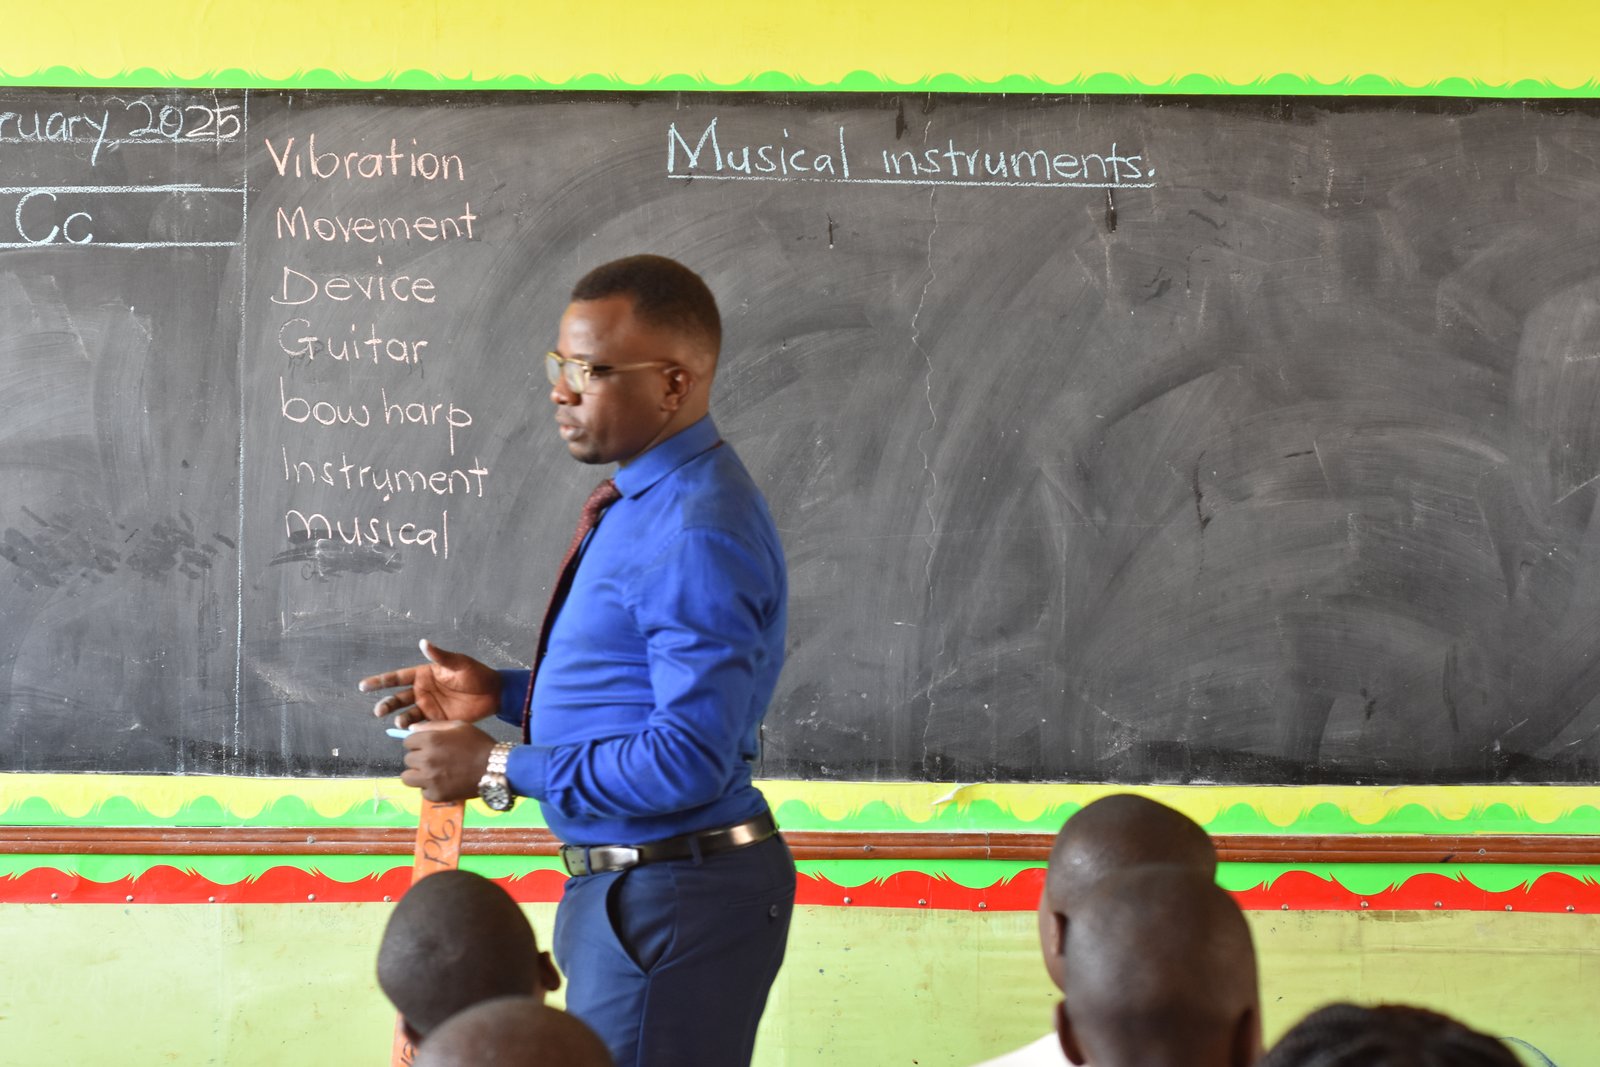 ruary, 2025
Cc
Vibration
Movement
Device
Guitar
bow harp
Instrument
musical
Musical instruments.
P6